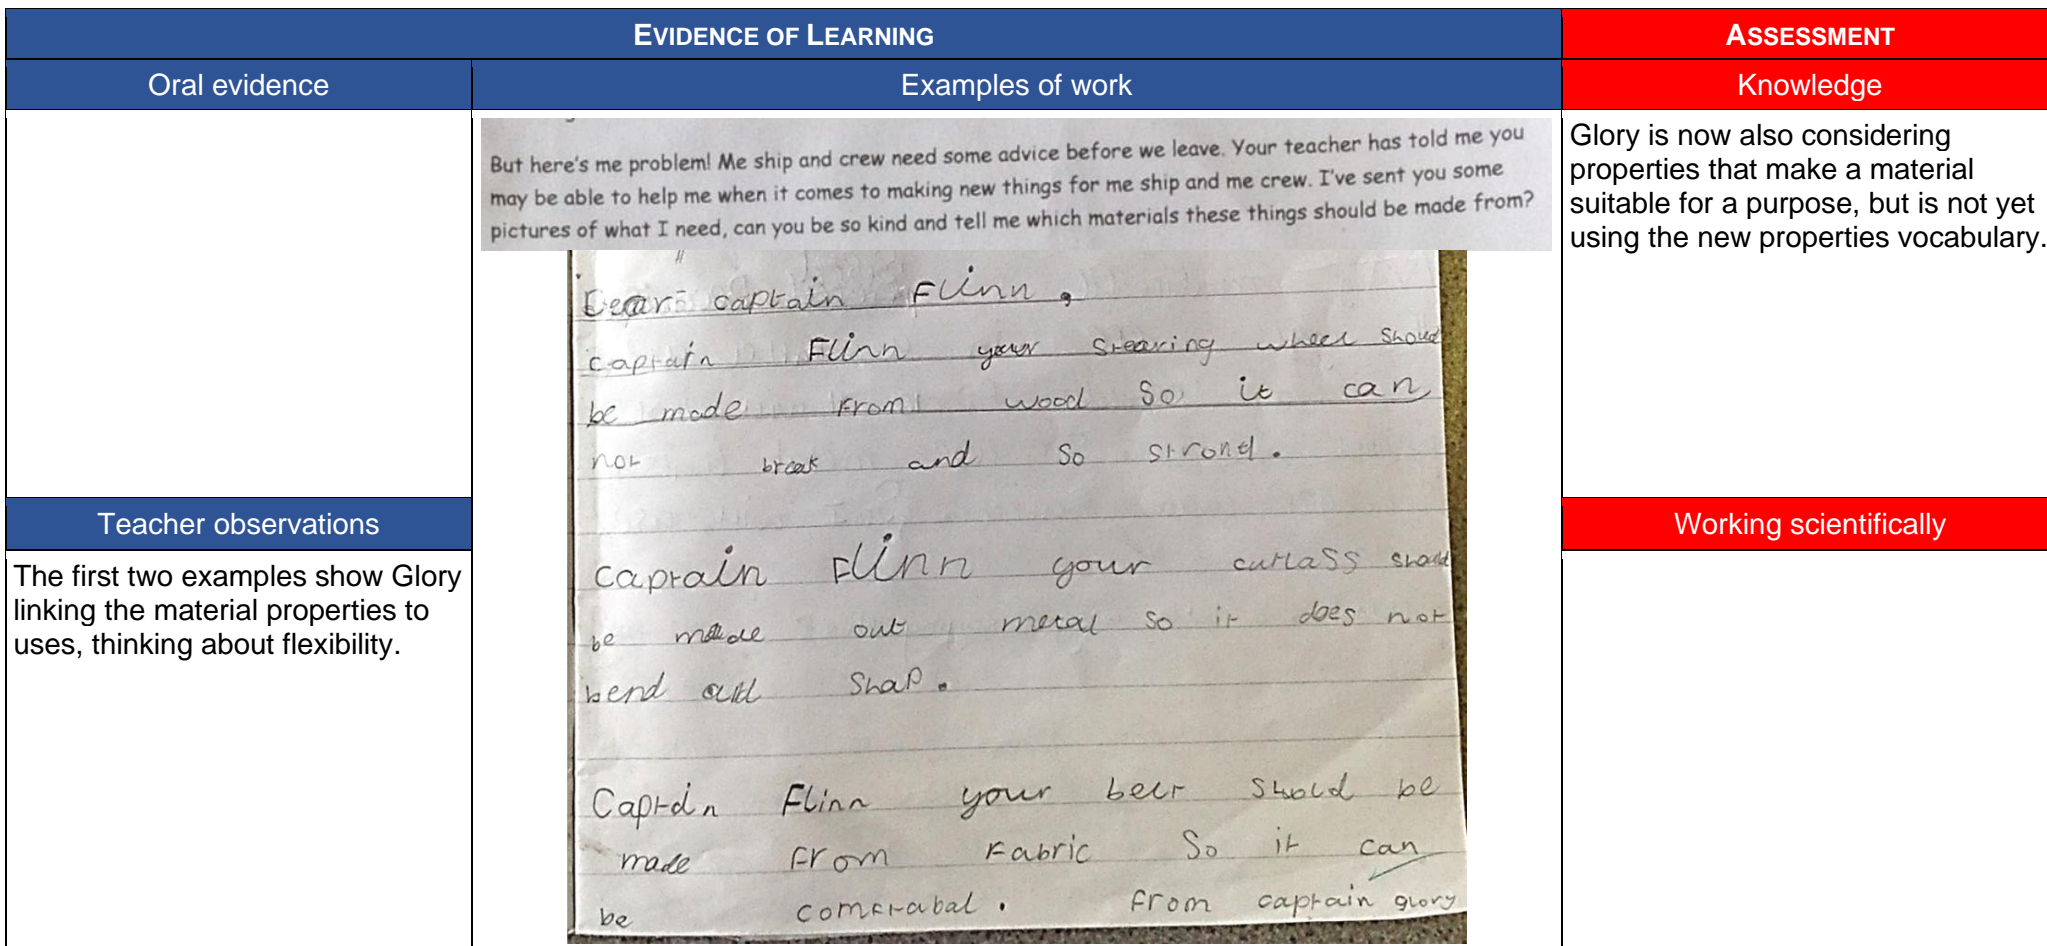 EVIDENCE OF LEARNING
ASSESSMENT
Oral evidence
Examples of work
Knowledge
But here's me problem! Me ship and crew need some advice before we leave. Your teacher has told me you
may be able to help me when it comes to making new things for me ship and me crew. I've sent you some
pictures of what I need, can you be so kind and tell me which materials these things should be made from?
Dear captain Flinn,
captain Flinn your stearing wheel should
be made from wood So it can
not break and so strong.
Captain Flinn your cutlass should
be made out metal so it does not
bend and shap.
Captain Flinn your belt shold be
made From Fabric So it can
be comftabal. From captain glory
Glory is now also considering
properties that make a material
suitable for a purpose, but is not yet
using the new properties vocabulary.
Teacher observations
The first two examples show Glory
linking the material properties to
uses, thinking about flexibility.
Working scientifically